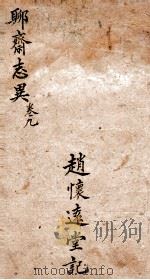 聊齋志異
卷九
趙懷遠堂記